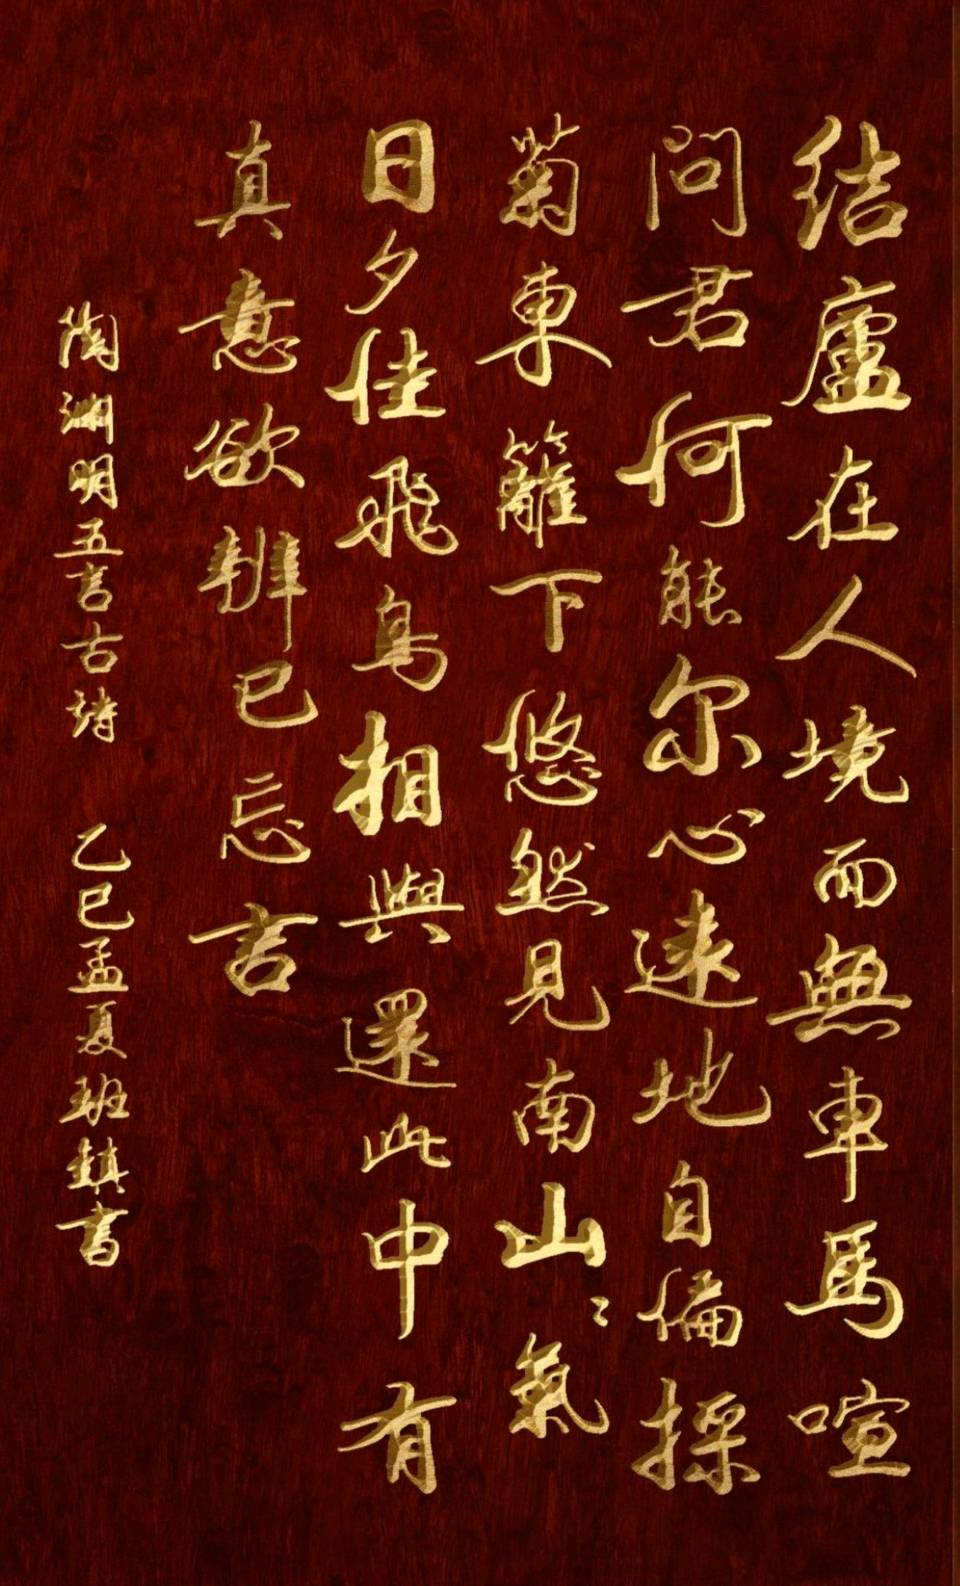 結廬在人境而無車馬喧
問君何能尔心遠地自偏採
菊東籬下悠然見南山〻氣
日夕佳飛鳥相與還此中有
真意欲辨已忘言
陶淵明五言古詩 乙巳孟夏班鎮書